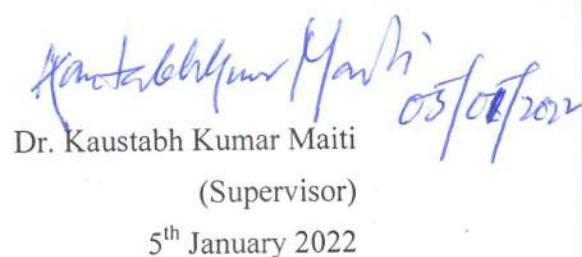 Kaustabh Kumar Maiti
05/01/2022
Dr. Kaustabh Kumar Maiti
(Supervisor)
5th January 2022